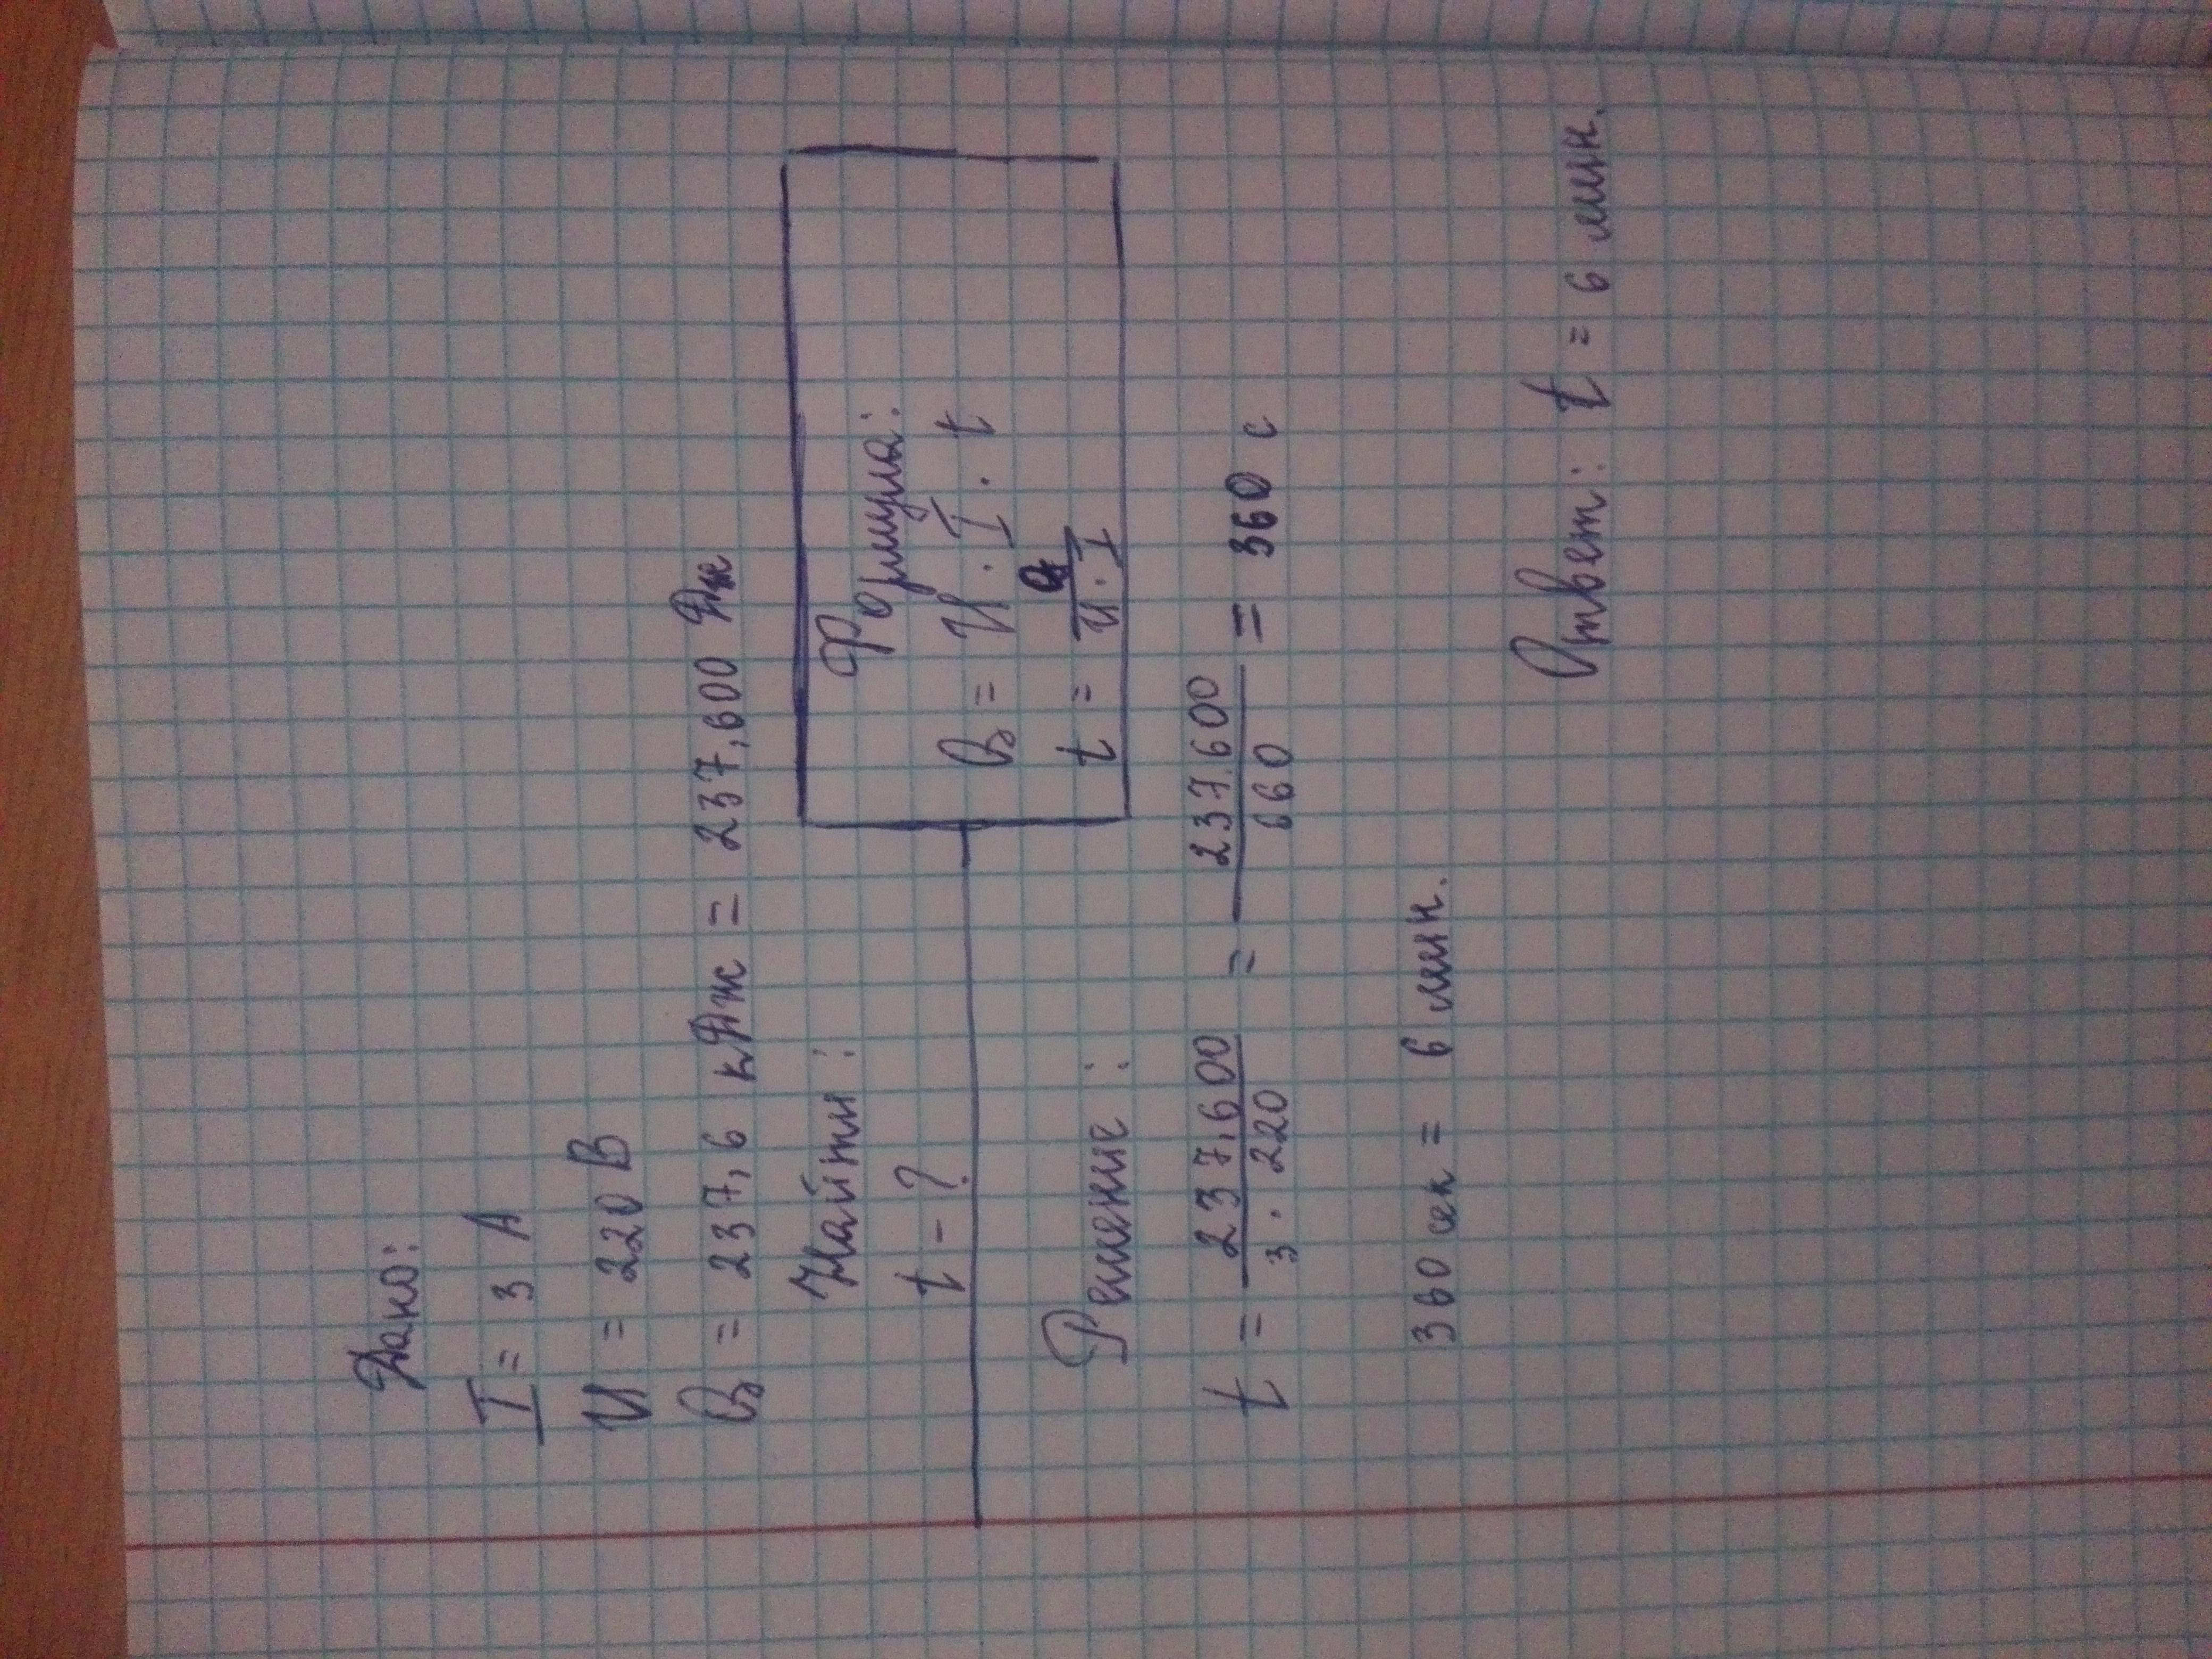 Дано:
I = 3 А
U = 220 В
Q = 237,6 кДж = 237,600 Дж
Найти:
t - ?
Формула:
Q = U · I · t
t = Q / U · I
Решение:
t = 237,600 / 3 · 220 = 237.600 / 660 = 360 с
360 сек = 6 мин.
Ответ: t = 6 мин.